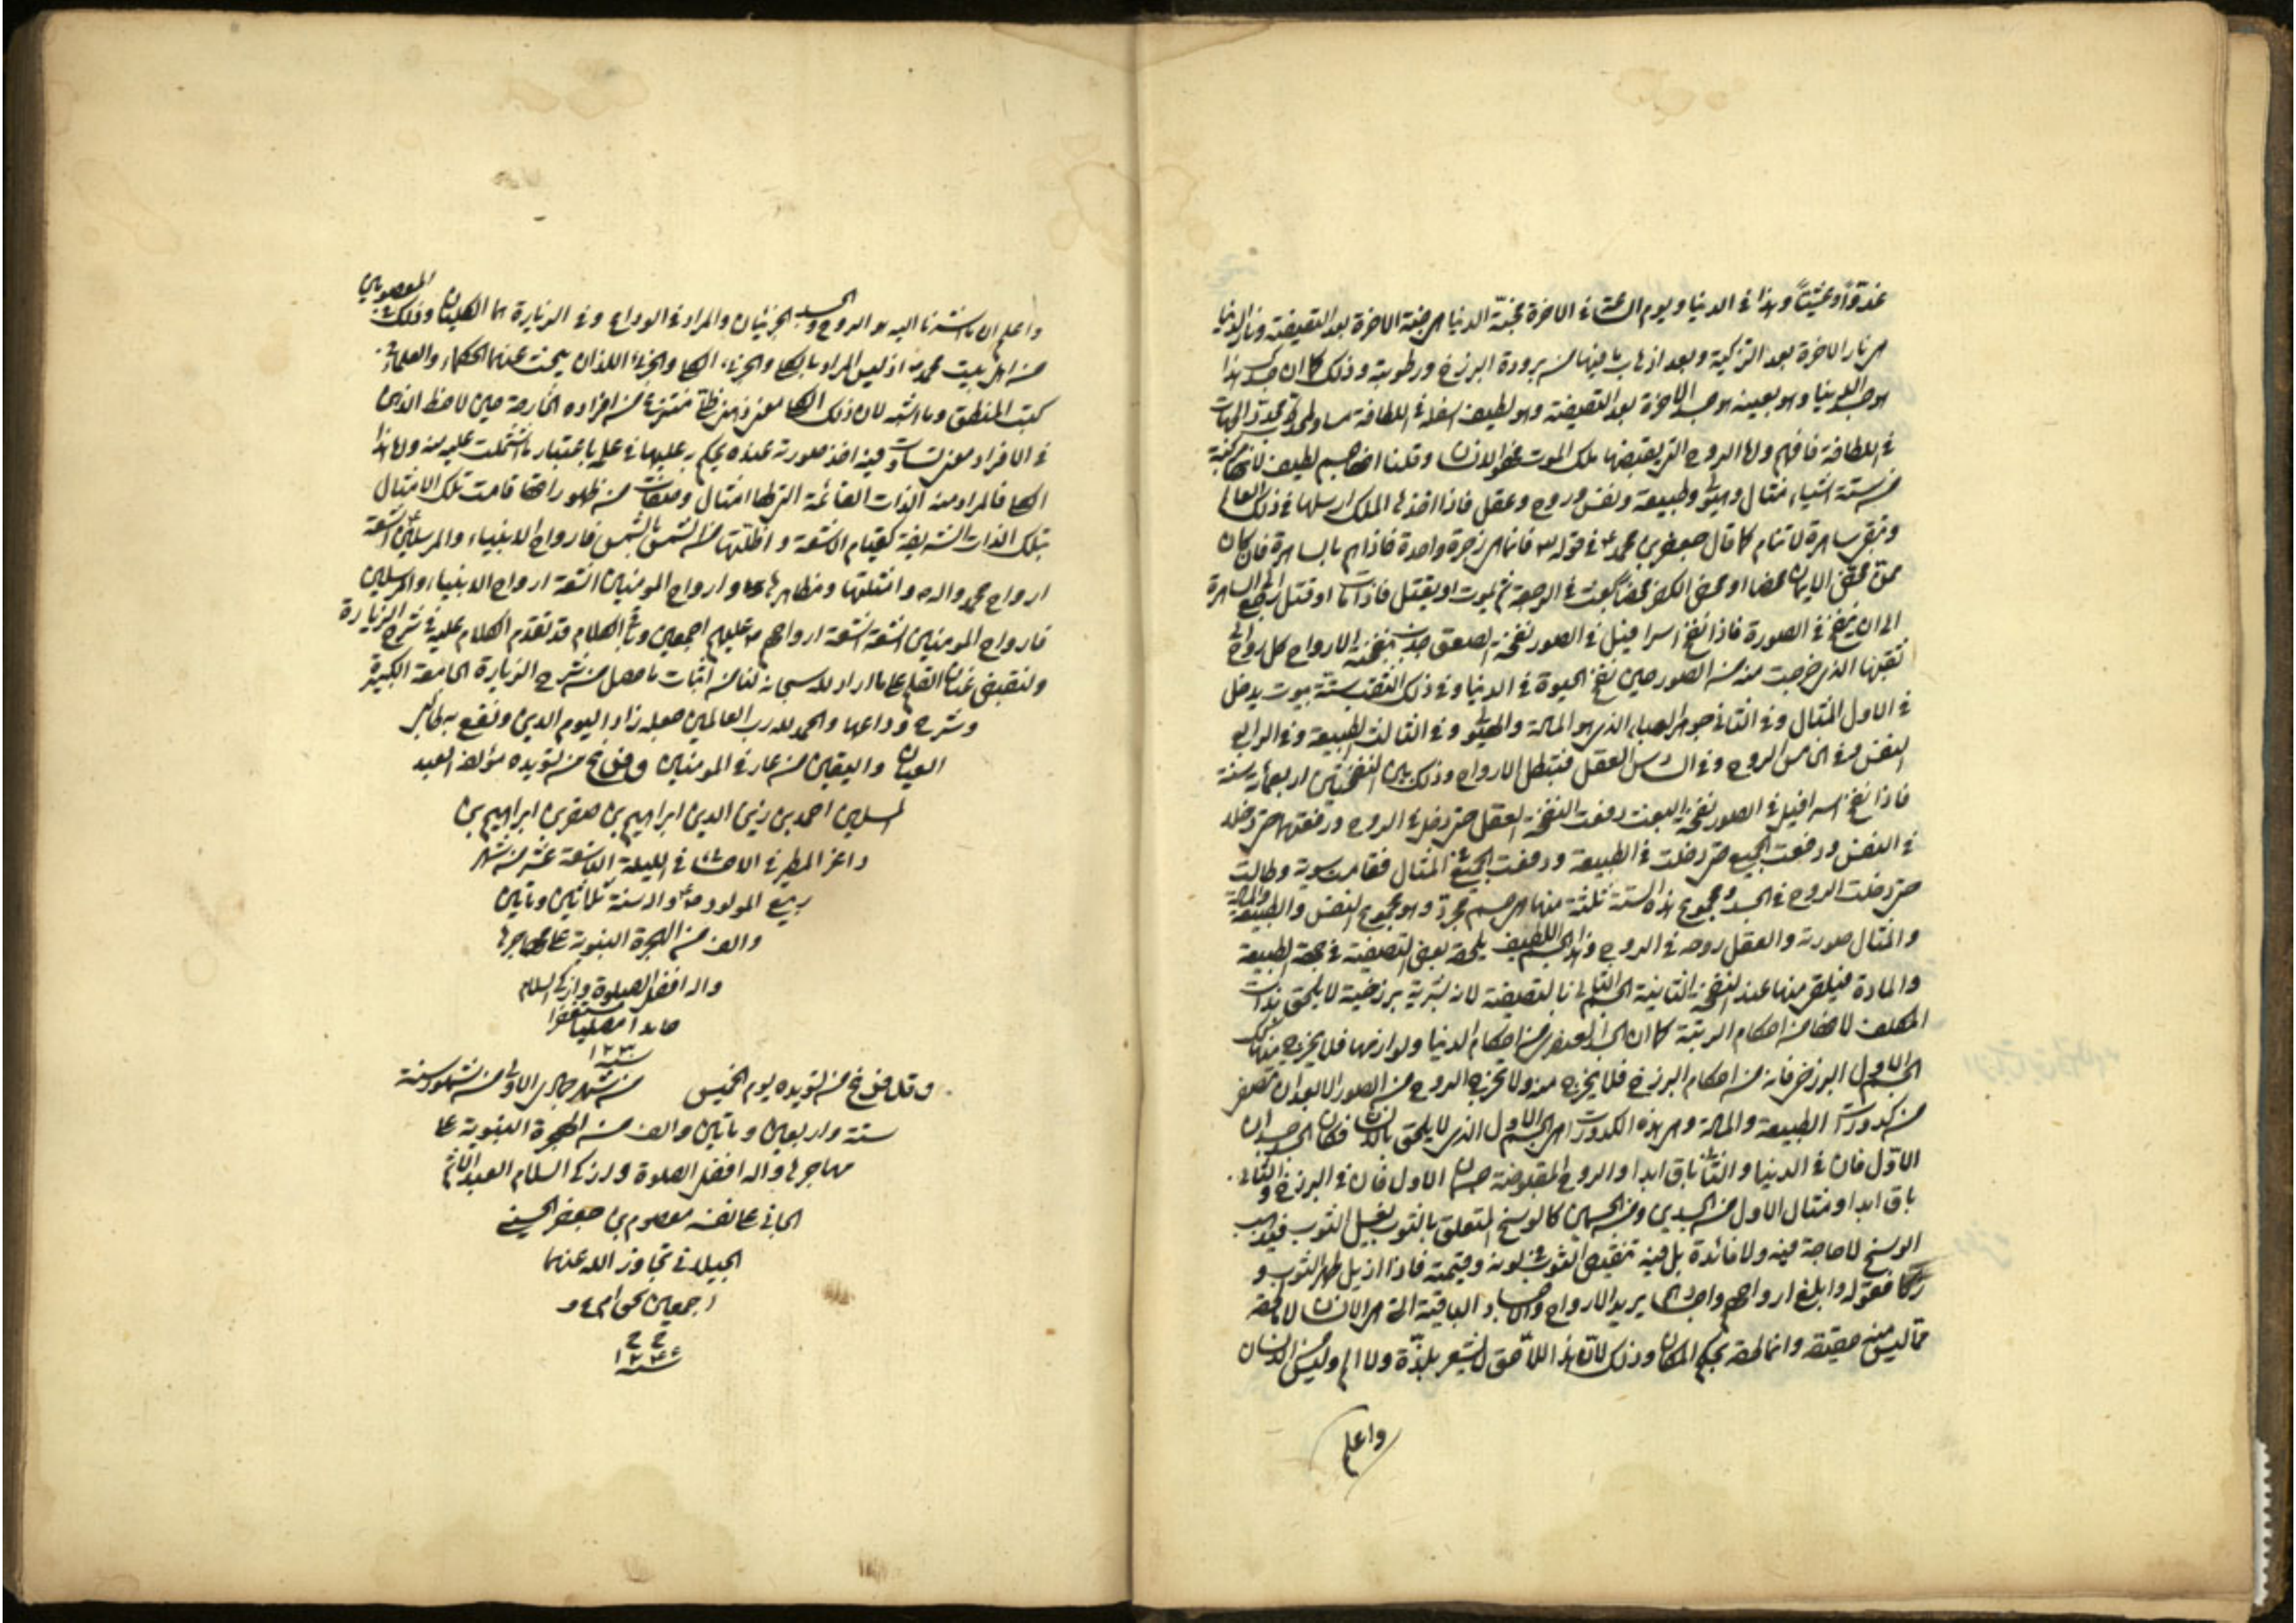 غدوّاً وعشيّاً وهذا في الدنيا ويوم الساعة في الاخرة فجنّة الدنيا هي جنة الاخرة بعد التصفية ونار الدنيا
هي نار الاخرة بعد التزكية وبعد اذهاب ما فيها من برودة البرزخ ورطوبته وذلك كما ان جسدك هذا
هو جسد الدنيا وهو بعينه هو جسد الاخرة بعد التصفية وهو لطيف اسفله في اللطافة مساو لمحدّب محدّد الجهات
في اللطافة فافهم ولها الروح التي يقبضها ملك الموت فهو الانسان وقلنا انها جسم لطيف لانها مركبة
من ستة اشياء مثال وهيولى وطبيعة ونفس وروح وعقل فاذا اخذها الملك ارسلها في ذلك العالم
وتبقى ساهرة لا تنام كما قال جعفر بن محمد ع في قوله تع فانما هي زجرة واحدة فاذا هم بالساهرة فان كان
ممن محض الايمان محضا او محض الكفر محضا يبعث في الرجعة ثم يموت او يقتل فاذا مات او قتل رجع الى الساهرة
الى ان ينفخ في الصور فاذا نفخ اسرافيل في الصور نفخة الصعق جذبت بنفخته الارواح كل روح الى
ثقبها الذي خرجت منه من الصور حين نفخ الحيوة في الدنيا وفي ذلك الثقب ستة بيوت يدخل
في الاول المثال وفي الثاني جوهر الهباء الذي هو المادة والهيولى وفي الثالث الطبيعة وفي الرابع
النفس وفي الخامس الروح وفي السادس العقل فتبطل الارواح وذلك بين النفختين اربعمائة سنة
فاذا نفخ اسرافيل في الصور نفخة البعث دفعت النفخة العقل حتى دخل في الروح ودفعتهما حتى دخلا
في النفس ودفعت الجميع حتى دخلت في الطبيعة ودفعت الجميع في المثال فقامت سوية وطالت
حتى دخلت الروح في الجسد ومجموع هذه الستة ثلثة منها هي جسم مجرد وهو مجموع النفس والطبيعة والمادة
والمثال صورته والعقل روحه في الروح وهذا الجسم اللطيف يلحقه بعض التصفية في جهة الطبيعة
والمادة فيلقى منها عند النفخة الثانية الجسم بالتصفية لانه بشرية برزخية لا يلحق بذات
المكلف لانها من احكام الرتبة كما ان الجسد العنصري من احكام الدنيا ولوازمها فلا يخرج منها كذلك
الجسم الاول البرزخي فانه من احكام البرزخ فلا يخرج منه ولا تخرج الروح من الصور الا بعد ان تصفى
من كدورات الطبيعة والمادة وهي هذه الكدورات هي الجسم الاول الذي لا يلحق بالانسان فكان الجسد جسدان
الاوّل فان في الدنيا والثاني باق ابدا والروح المقبوضة جسمان الاول فان في البرزخ والثاني
باق ابدا ومثال الاول من الجسدين ومن الجسمين كالوسخ المتعلق بالثوب يغسل الثوب فيذهب
الوسخ لا حاجة فيه ولا فائدة بل فيه تنقيص الثوب في لونه وقيمته فاذا ازيل طهر الثوب و
زكا فقوله وابلغ ارواحهم واجسادهم يريد الارواح والاجساد الباقية التي هي الانسان لا ما لحقه
مما ليس منه حقيقة وانما لحقه بحكم المكان وذلك لان هذا اللاحق لا يشعر بلذّة ولا الم وليس من الانسان
واعلم
واعلم ان ما اشرنا اليه هو الروح والجسد الجزئيان والمراد في الوداع وفي الزيارة هما الكليان وذلك في المعصومين
من اهل بيت محمد ص اذ ليس المراد بالكلي والجزئي الكلي والجزئي اللذان يبحث عنهما الحكماء والعلماء في
كتب المنطق وما اشبه لان ذلك الكلي معنى ذهني ظلّي منتزع من افراده الخارجة حين لاحظ الذهن
في الافراد معنى تساوت فيه اخذ صورته عنده يحكم به عليها في علمه باعتبار ما اشتملت عليه منه واما هذا
الكلي فالمراد منه الذات القائمة التي لها امثال وصفات من ظهور اتها قامت تلك الامثال
بتلك الذات الشريفة كقيام الاشعة واظلتها من الشمس بالشمس فارواح الانبياء والمرسلين ع اشعة
ارواح محمد واله ص وامثلتها ومظاهرها وارواح المومنين اشعة ارواح الانبياء والمرسلين
فارواح المومنين اشعة اشعة ارواحهم ص عليهم اجمعين وباقي الكلام قد تقدم الكلام عليه في شرح الزيارة
ولنقبض عنان القلم على ما اراد الله سبحانه لنا من اثبات ما حصل من شرح الزيارة الجامعة الكبيرة
وشرح وداعها والحمد لله رب العالمين جعله زادا ليوم الدين ونفع به طالبي
العيان واليقين من عارفي المومنين وفرغ من تسويده مؤلفه العبد
المسكين احمد بن زين الدين ابراهيم بن صقر بن ابراهيم بن
داغر المطيرفي الاحسائي في الليلة التاسعة عشر من شهر
ربيع المولود ص واله سنة ثلاثين ومأتين
والف من الهجرة النبوية على مهاجرها
واله افضل الصلوة وازكى السلام
حامدا مصليا مستغفرا
سنة ١٢٣٠
وقد فرغ من تسويده يوم الخميس من شهر جمادى الاولى من شهور سنة
ستة واربعين ومأتين والف من الهجرة النبوية على
مهاجرها واله افضل الصلوة وازكى السلام العبد الاثم
الجاني على نفسه معصوم بن جعفر الحسيني
الجيلاني تجاوز الله عنهما
اجمعين بحق
سنة ١٢٤٦